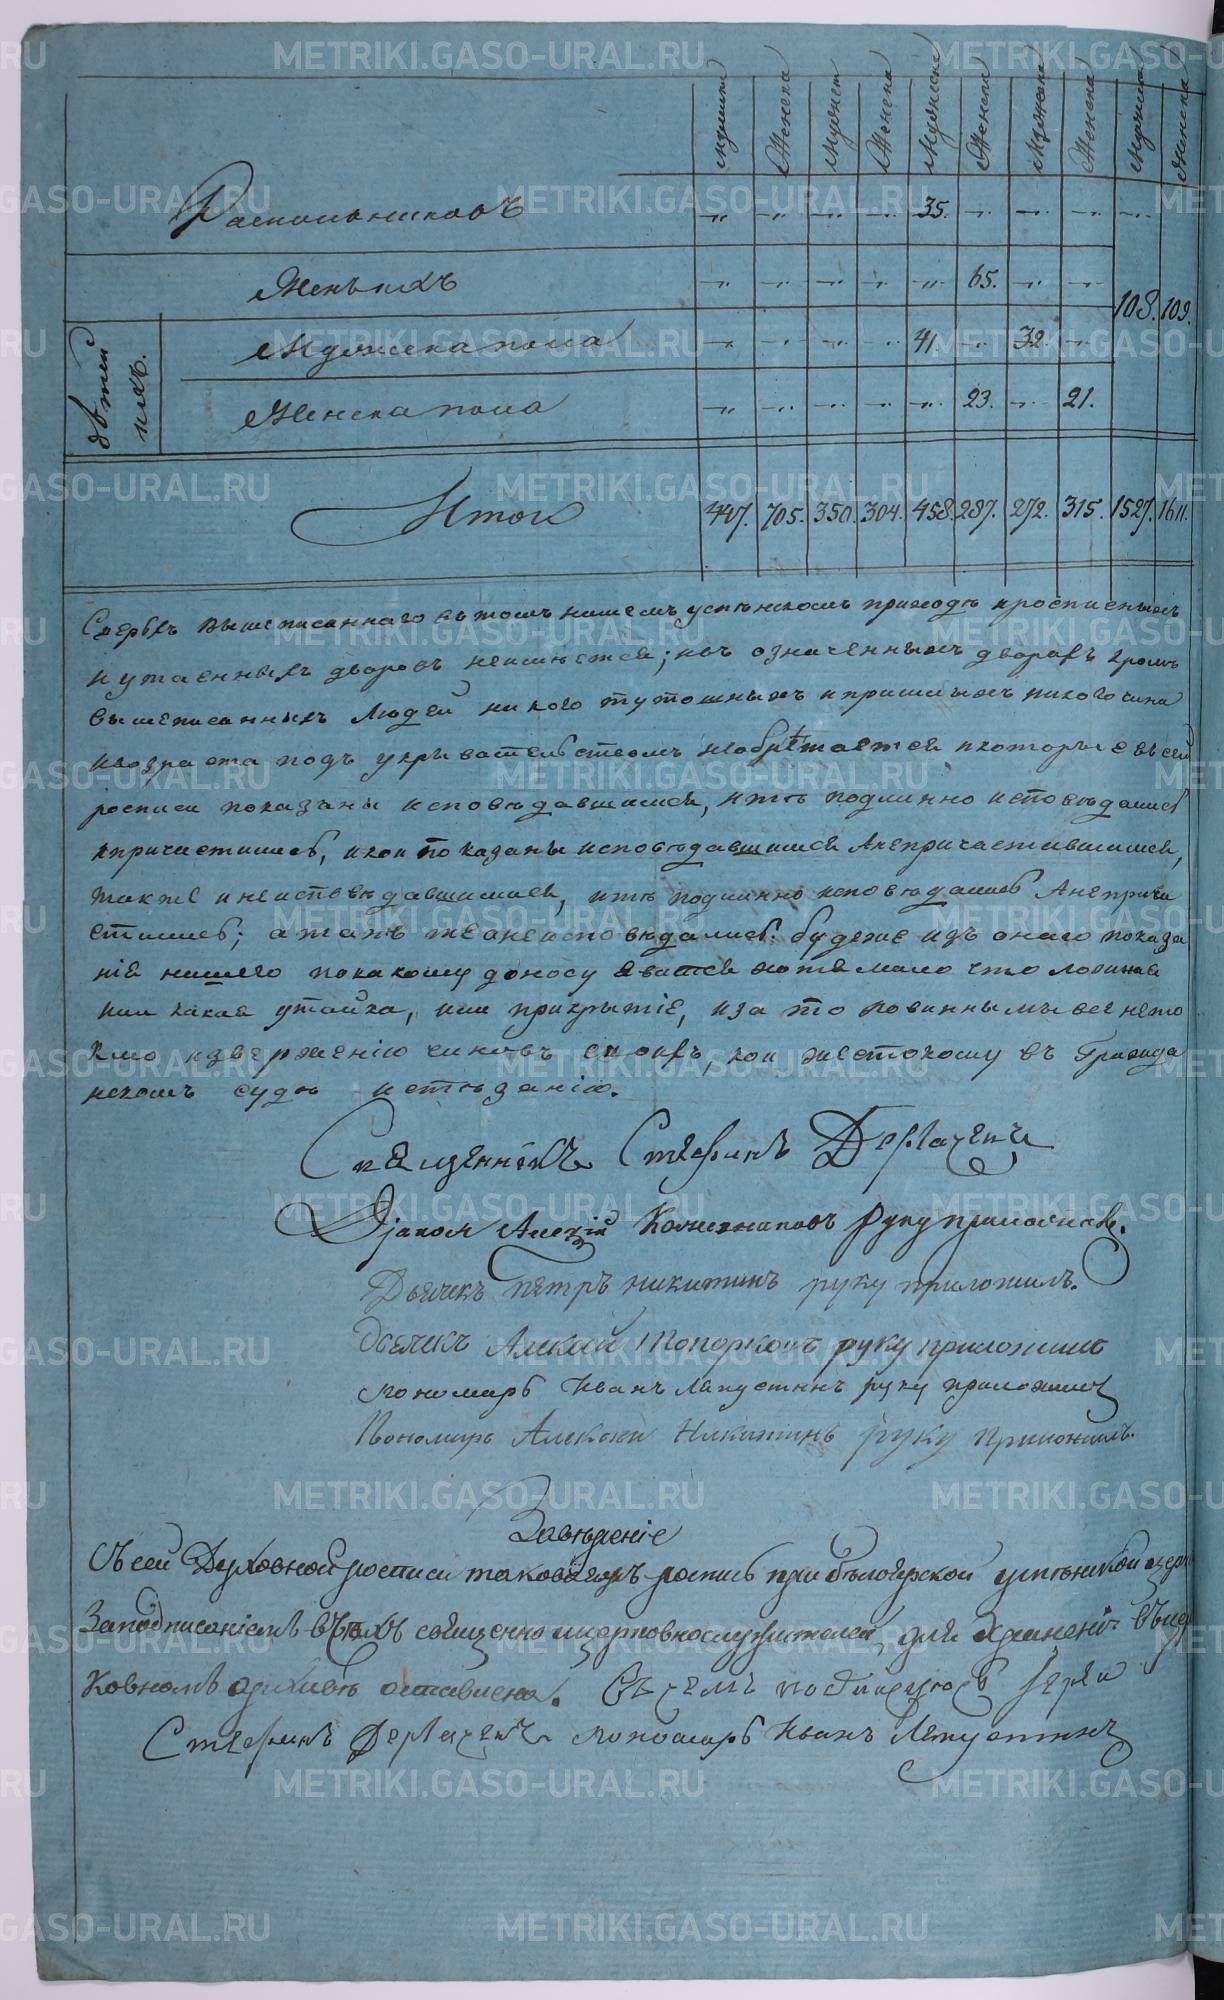 Мужеска Женска Мужеск Женска Мужеска Женска Мужеска Женска Мужеска Женска
Раскольниковъ " " " " 35. " " " "
Жен ихъ " " " " " 65. " " 108. 109.
дѣтей ихъ. Мужеска пола " " " " 41. " 32. "
Женска пола " " " " " 23. " 21.
Итого 447. 705. 350. 304. 458. 287. 272. 315. 1527. 1611.
Сверхъ вышеписаннаго въ томъ нашемъ успѣнскомъ приходѣ прописныхъ
и утаенныхъ дворовъ неимѣется; и въ означенныхъ дворахъ кромѣ
вышеписанныхъ людей никого тутошныхъ и пришлыхъ никого чина
и возраста подъ укрывательствомъ необрѣтается и которые въ сей
росписи показаны исповѣдавшимися, и тѣ подлинно исповѣдались
и причастились, и кои показаны исповѣдавшимися а непричастившимися,
также и неисповѣдавшимися, и тѣ подлинно исповѣдались а неприча
стились; а также и неисповѣдались. будеже изъ онаго показа
ніе нашего по какому доносу явится хотя мало что ложнае
или какая утайка, или прикрытіе, и за то повинны мы все нето
кмо изверженію чиновъ своихъ, но и жестокому въ Гражда
нскомъ судѣ истязанію.
Священникъ Стефанъ Дерлачевъ
Діаконъ Алексій Колчениковъ руку приложилъ.
Дьячекъ петръ никитинъ руку приложилъ.
дьячекъ Алексѣй Топорковъ руку приложилъ
пономарь Иванъ Лапустинъ руку приложилъ
Пономарь Алексѣй Никитинъ руку приложилъ.
Завѣреніе
Съ сей Духовной росписи таковая жъ роспись при бѣлоярской успѣнской церкви
За подписаніемъ всѣхъ священно и церковнослужителей, для храненія въ цер
ковномъ архивѣ оставлена. Въ чемъ подписуюсь Іерей
Стефанъ Дерлачевъ пономарь Иванъ Лапустинъ
METRIKI.GASO-URAL.RU